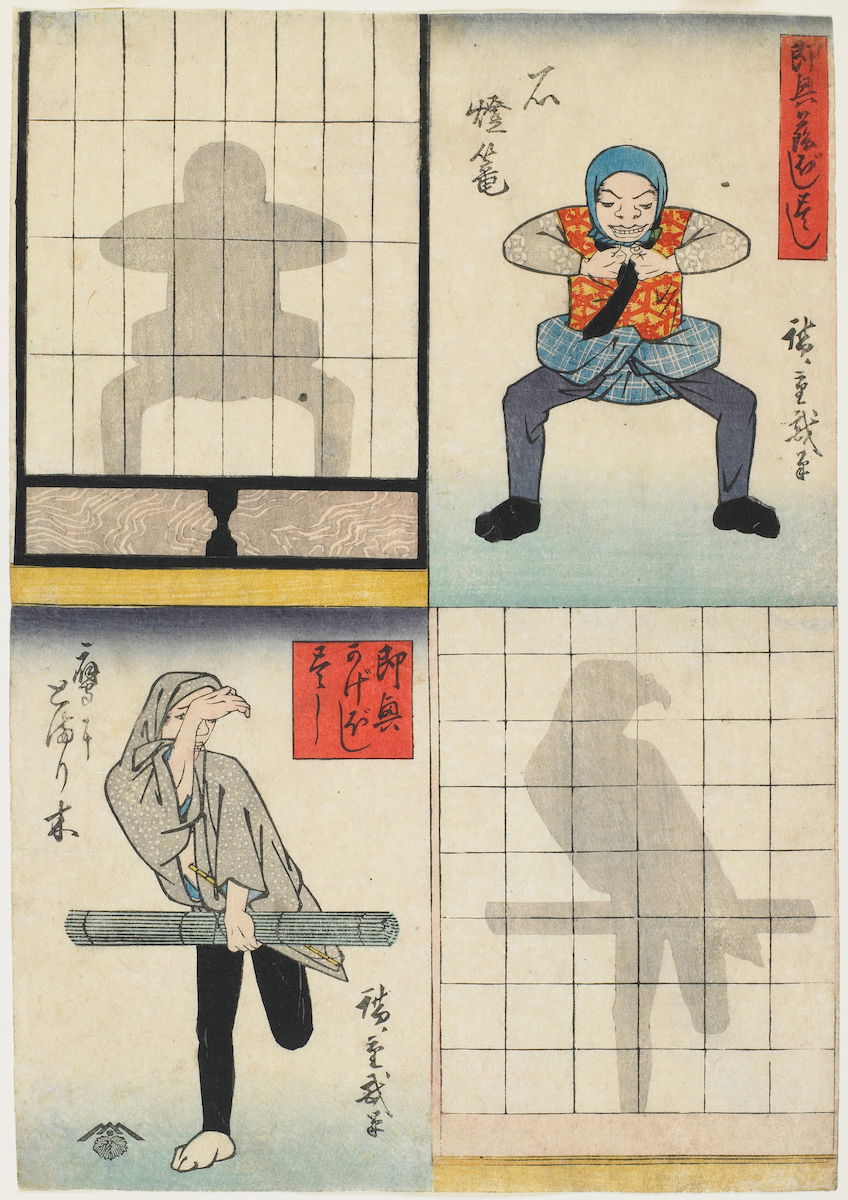 即興かげぼしづくし
石
燈籠
廣重戯筆
即興
かげぼし
づくし
鷹に
とまり木
廣重戯筆